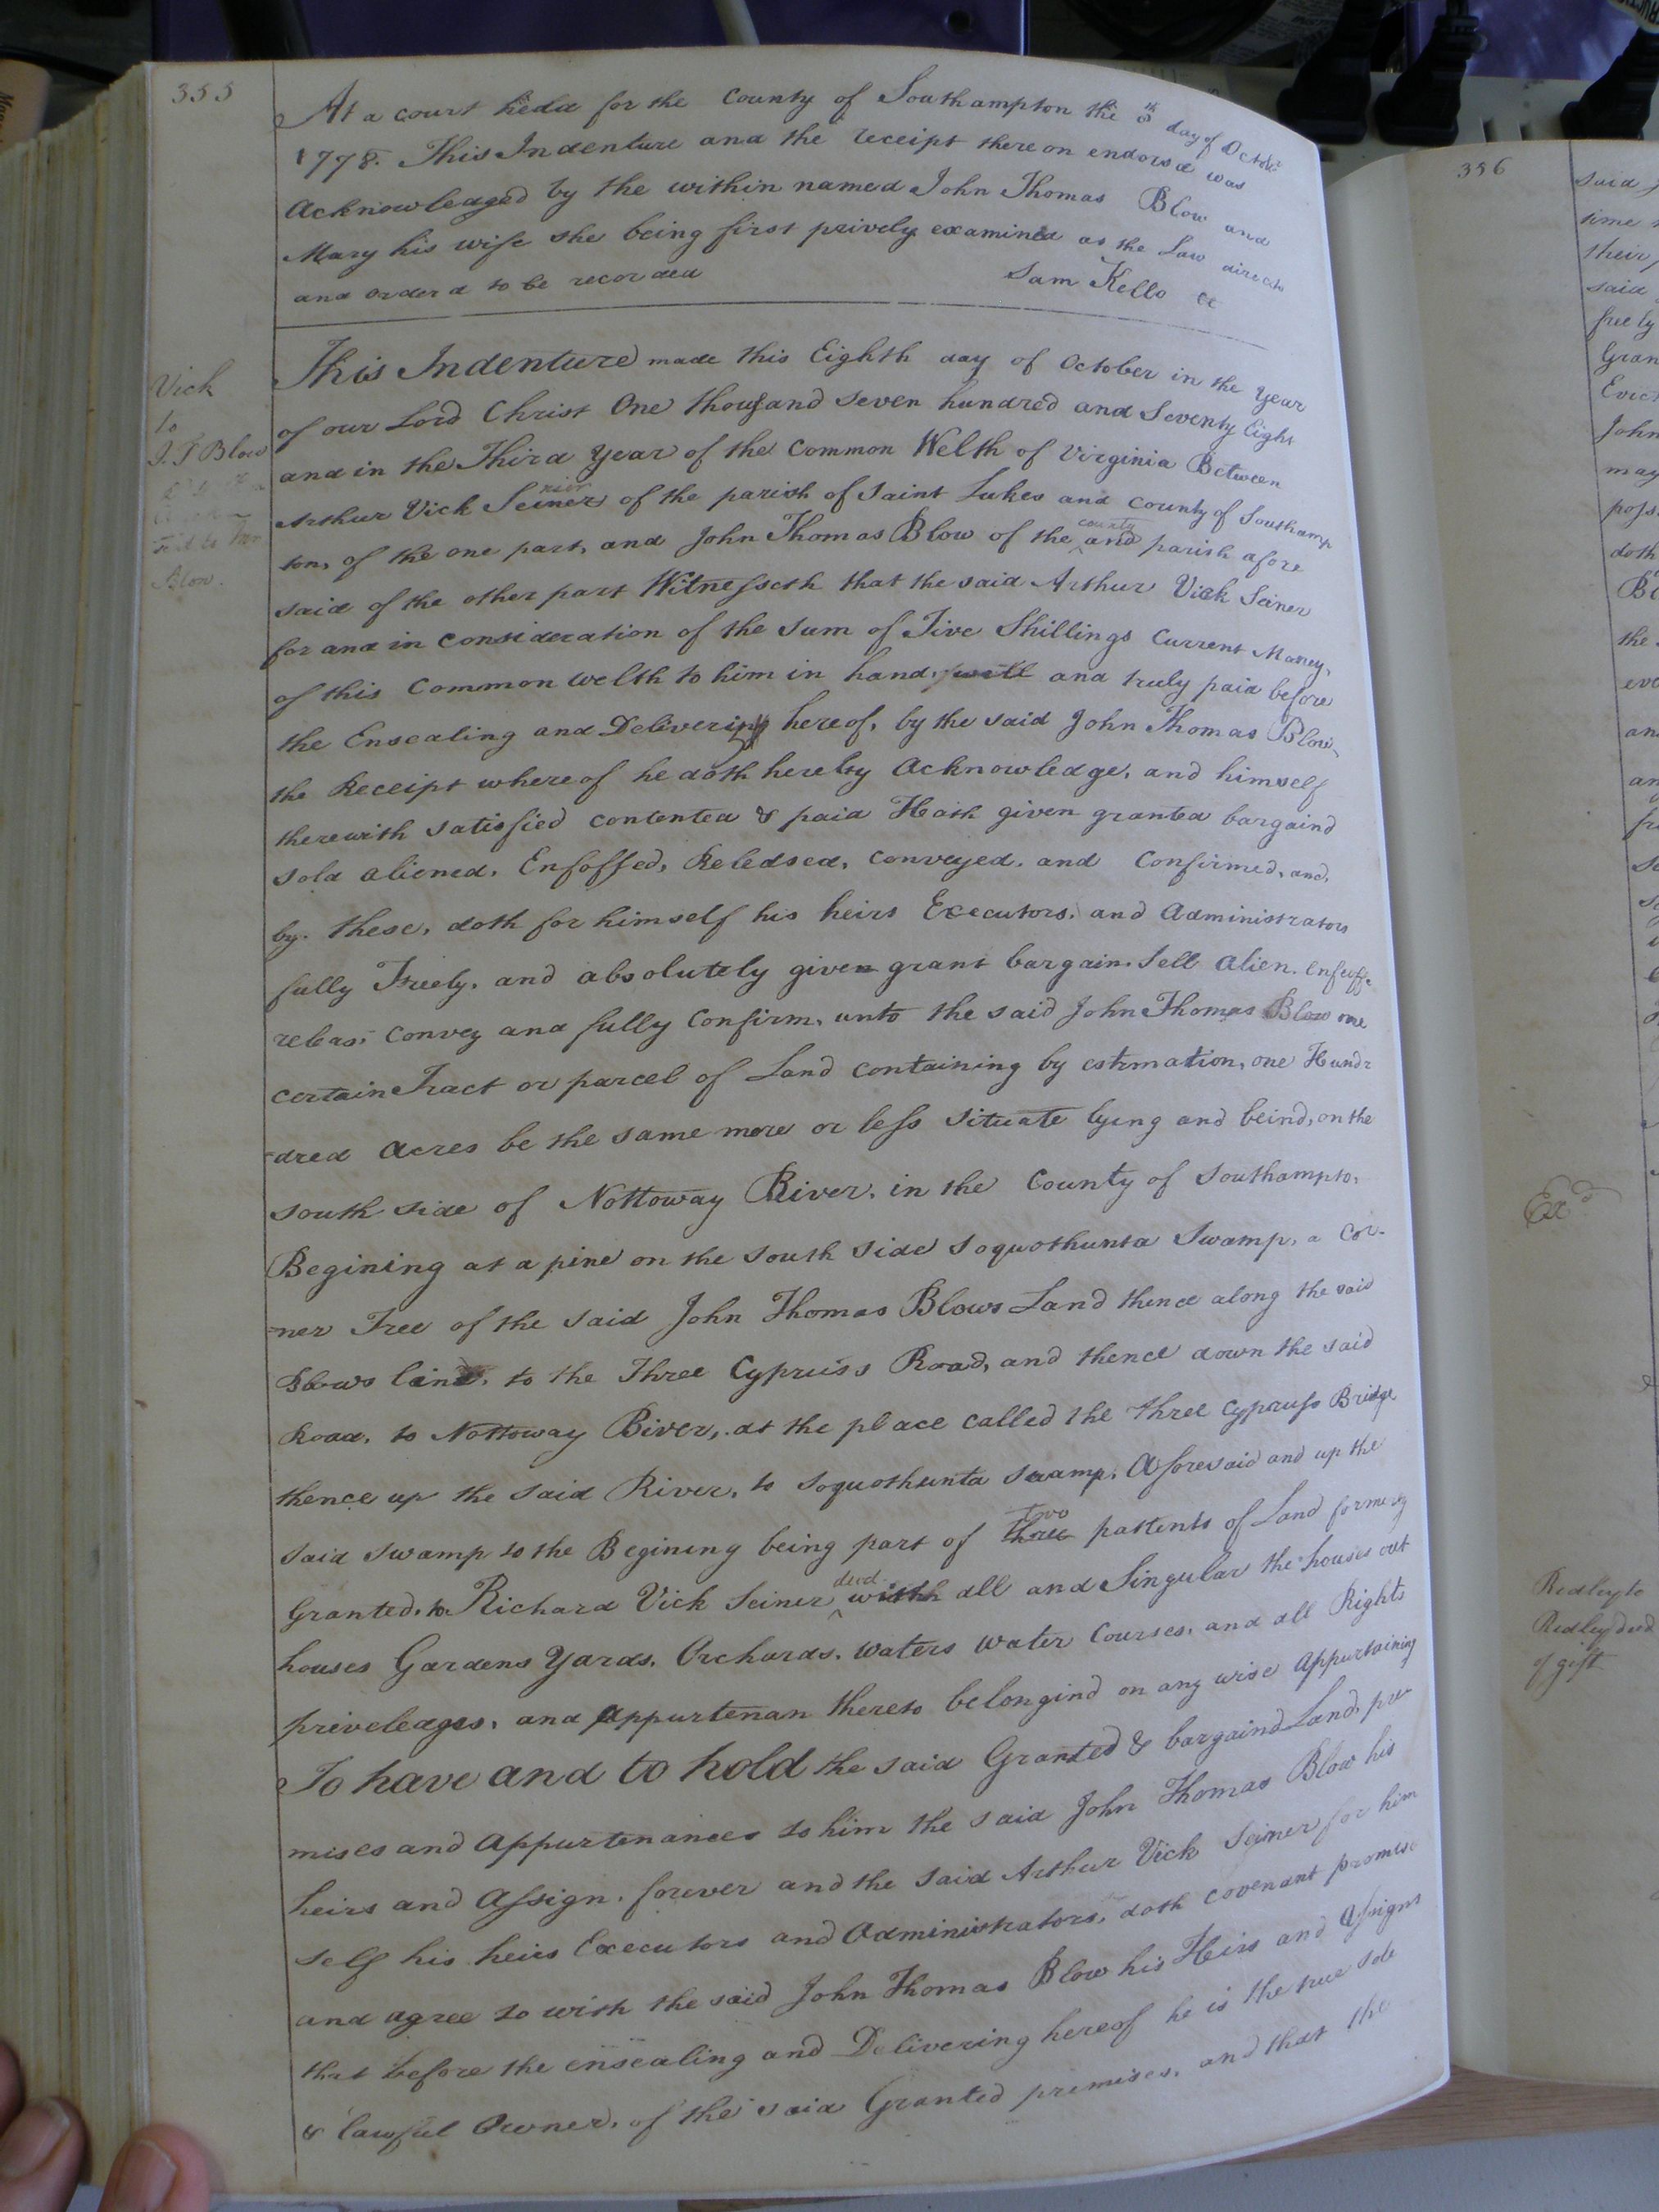 355
At a court held for the County of Southampton the 8th day of Octobr
1778. This Indenture and the receipt thereon endorsd was
Acknowledged by the within named John Thomas Blow and
Mary his wife she being first prively examined as the Law directs
and orderd to be recorded
Sam Kello CC
Vick
to
J. T Blow
Blow.
This Indenture made this Eighth day of October in the Year
of our Lord Christ One thousand seven hundred and Seventy Eight
and in the Third Year of the Common Welth of Virginia Between
Arthur Vick Seiner of the parish of Saint Lukes and County of Southamp
ton, of the one part, and John Thomas Blow of the county and parish afore
said of the other part Witnesseth that the said Arthur Vick Seiner
for and in consideration of the sum of Five Shillings Current Money,
of this Common welth to him in hand, well and truly paid before
the Ensealing and Delivering hereof, by the said John Thomas Blow,
the Receipt whereof he doth hereby Acknowledge, and himself
therewith satisfied contented & paid Hath given granted bargaind
sold aliened, Enfoffed, Reledsed, Conveyed, and Confirmed, and,
by these, doth for himself his heirs Executors, and Administrators
fully Freely, and absolutely given grant bargain. Sell Alien. Enfeoffe
releas, Convey and fully Confirm, unto the said John Thomas Blow one
certain Tract or parcel of Land containing by estimation, one Hund=
=dred Acres be the same more or less situate lying and beind, on the
south side of Nottoway River, in the County of Southampto,
Begining at a pine on the South Side Soquothunta Swamp, a Cor-
=ner Tree of the said John Thomas Blows Land thence along the said
Blows line, to the Three Cypriss Road, and thence down the said
Road, to Nottoway River, at the place called the three Cypruss Bridge
thence up the said River, to Soquothunta Swamp, Aforesaid and up the
said Swamp to the Begining being part of three two pattents of Land formerly
Granted, to Richard Vick Seiner decd with all and Singular the houses out
houses Gardens Yards, Orchards, waters water Courses, and all Rights
priveleages, and Appurtenan thereto belongind on any wise Appurtaining
To have and to hold the said Granted & bargaind Land, pre
mises and Appurtenances to him the said John Thomas Blow his
heirs and Assign, forever and the said Arthur Vick Seiner for him
self his heirs Executors and Administrators, doth covenant promise
and agree to with the said John Thomas Blow his Heirs and Assigns
that before the ensealing and Delivering hereof he is the true sole
& lawful Owner, of the said Granted premises, and that the
356
said
time
their
said
freely
Gran
Evict
John
may
poss
doth
Bl
the
eve
an
an
fr
Exd
Ridley to
Ridley deed
of gift